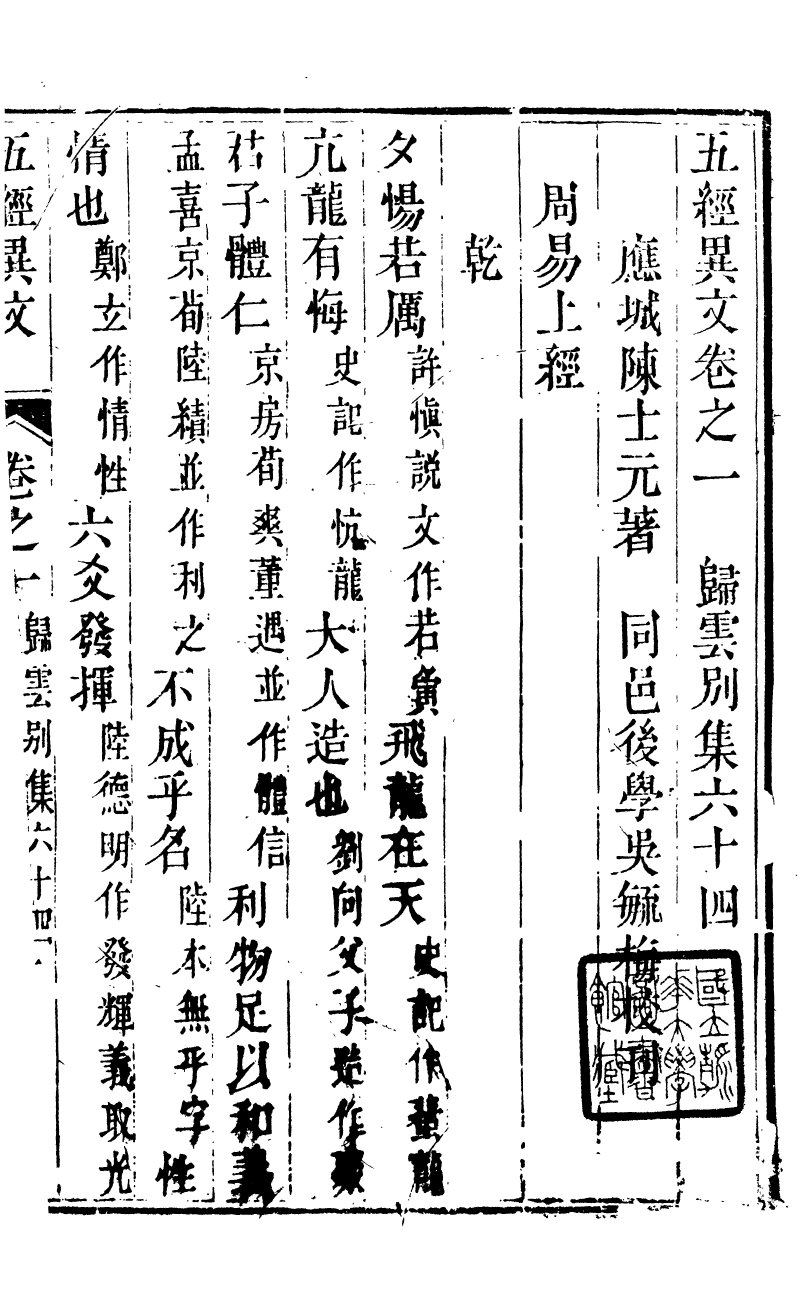 五經異文卷之一　歸雲別集六十四
應城陳士元著　同邑後學吳毓梅校刊
周易上經
乾
夕惕若厲許愼説文作若夤飛龍在天史記作蜚龍
亢龍有悔史記作忼龍大人造也劉向父子並作聚
君子體仁京房荀爽董遇並作體信利物足以和義
孟喜京荀陸績並作利之不成乎名陸本無乎字性
情也鄭玄作情性六爻發揮陸德明作發輝義取光
五經異文　卷之一　歸雲別集六十四　一
國立北平大學